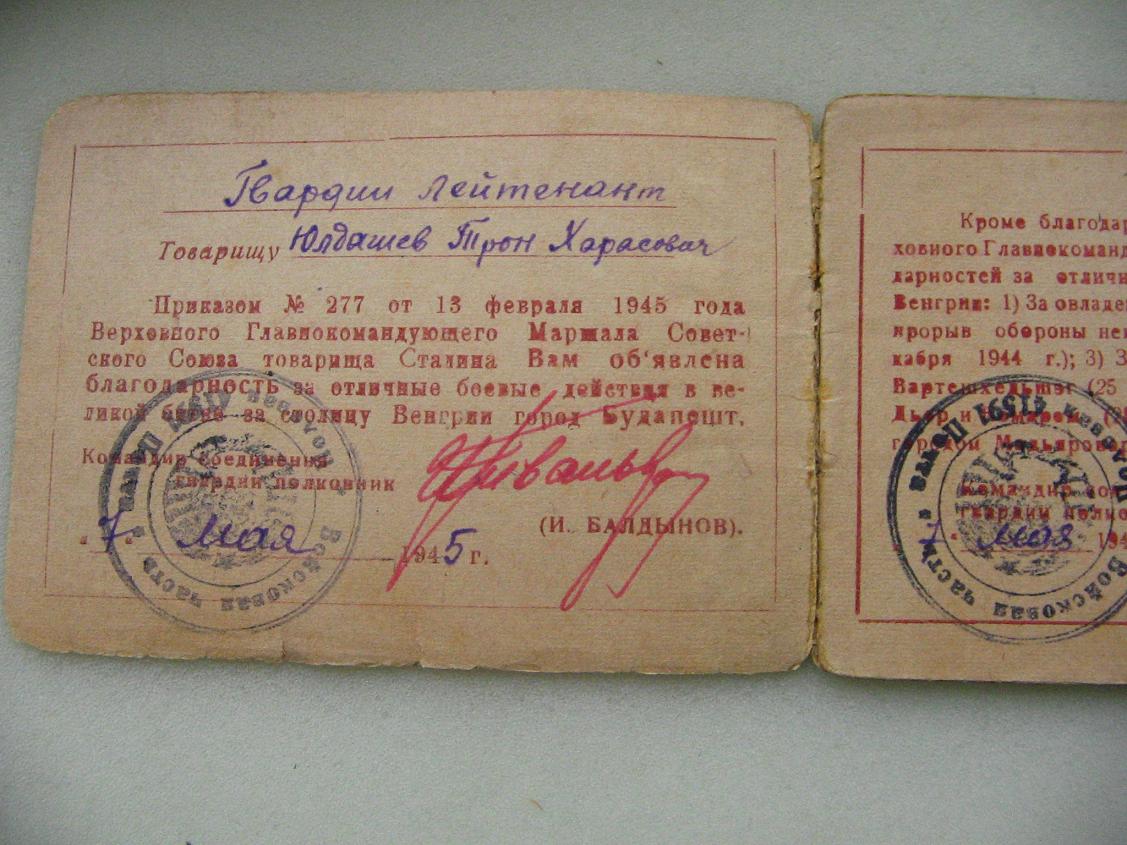 Гвардии Лейтенант
Товарищу Юлдашев Трон Харасович
Приказом № 277 от 13 февраля 1945 года
Верховного Главнокомандующего Маршала Совет-
ского Союза товарища Сталина Вам об'явлена
благодарность за отличные боевые действия в ве-
ликой битве за столицу Венгрии город Будапешт.
Командир соединения
гвардии полковник
(И. БАЛДЫНОВ).
" 7 " мая 1945 г.
Войсковая часть Полевая почта
Кроме благодар
ховного Главнокоманд
дарностей за отличн
Венгрии: 1) За овладе
прорыв обороны нем
кабря 1944 г.); 3) З
(25
городом
Командир сое
гвардии полко
" 7 " мая 194
Войсковая часть